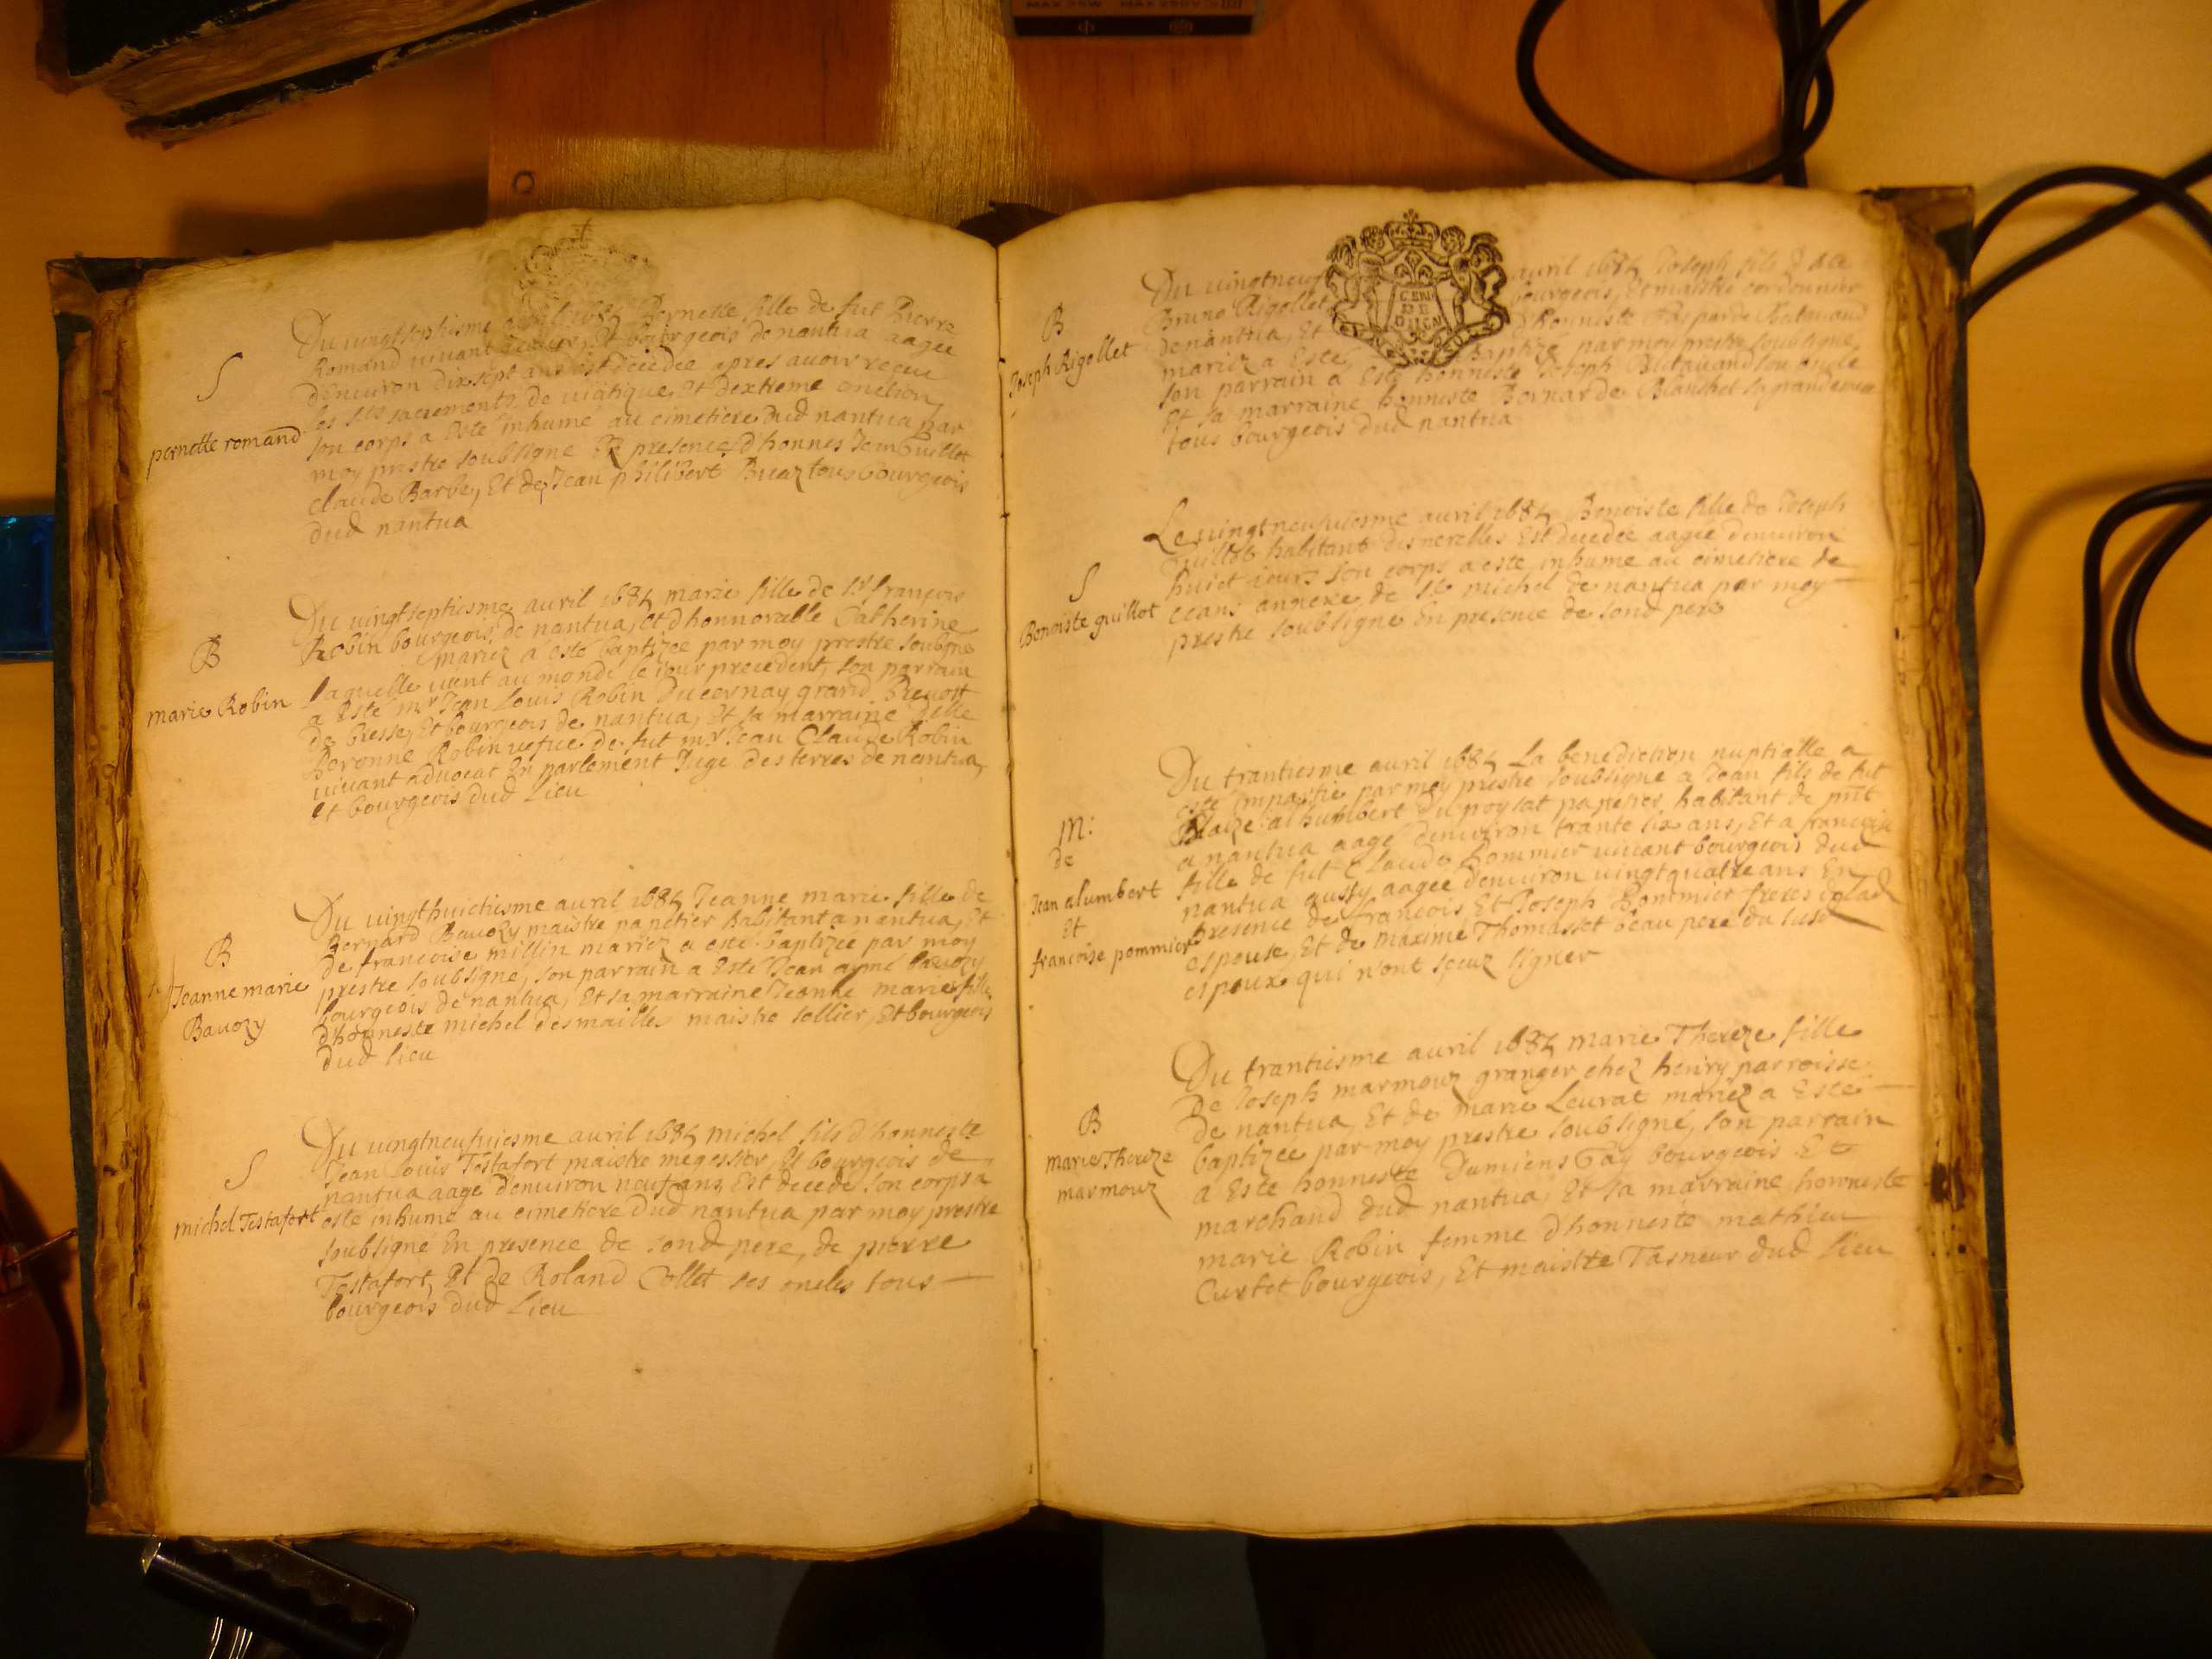 MAX 25W MAX 250V
S
pernette romand
Du vingtseptiesme avril 1685 Pernette fille de fut Pierre
Romand vivant et bourgeois de nantua aagee
d'environ dix sept ans est decedee apres avoir receu
les sts sacrements de viatique, et d'extreme onction,
son corps a este inhumé au cimetiere dud nantua par
moy prestre soubsigne En presence d'honnes Jean Guillot
claude Barbe, Et de Jean philibert Buaz tous bourgeois
dud nantua
B
marie Robin
Du vingtseptiesme avril 1685 marie fille de sr françois
Robin bourgeois de nantua, et d'honnorable Catherine
mariez a esté baptizee par moy prestre soubgne
laquelle vient au monde le jour precedent, son parrain
a Esté mr Jean Louis Robin Ducernay grand Prevost
de bresse, Et bourgeois de nantua, Et sa marraine delle
Peronne Robin vefve de fut mr Jean Claude Robin
vivant advocat En parlement Juge des terres de nantua,
Et bourgeois dud Lieu
B
Jeanne marie
Bavozy
Du vingthuictiesme avril 1685 Jeanne marie fille de
Bernard Bavozy maistre papetier habitant a nantua, Et
de francoise millin mariez a esté baptizée par moy
prestre soubsigné, son parrain a Esté Jean aymé bavozy
bourgeois de nantua, Et sa marraine Jeanne marie fille
d'honneste michel desmailles maistre sellier, Et bourgeois
dud lieu
S
michel Testafort
Du vingtneufviesme avril 1685 michel fils d'honneste
Jean Louis Testafort maistre megessier Et bourgeois de
nantua aagé d'environ neuf ans Est decedé son corps a
esté inhumé au cimetiere Dud nantua par moy prestre
soubsigné En presence de sond pere, de pierre
Testafort, Et de Roland Collet ses oncles tous
bourgeois dud Lieu
B
Joseph Rigollet
GEN
DE
DIJON
Du vingtneuf avril 1685 Joseph fils d
Bruno Rigollet bourgeois, Et maistre cordonnier
de nantua, Et d'honneste
mariez a Esté baptizé par moy prestre soubsigne,
son parrain a Esté honneste Joseph son oncle
Et sa marraine honneste Bernarde Blanchet sa grandemere
tous bourgeois dud nantua
S
Benoiste guillot
Le vingtneufviesme avril 1685 Benoiste fille de Joseph
Guillot habitant des nerolles Est decedee aagee d'environ
huict jours son corps a esté inhumé au cimetiere de
ceans annexe de St michel de nantua par moy
prestre soubsigne En presence de sond pere
M:
de
Jean alumbert
Et
francoise pommier
Du trantiesme avril 1685 La benediction nuptialle a
esté impartie par moy prestre soubsigné a Jean fils de fut
Blaize alhumbert du poysat papetier habitant de pnt
a nantua aagé d'environ trante six ans, Et a francoise
fille de fut Claude Pommier vivant bourgeois dud
nantua aussy aagee d'environ vingtquatre ans En
presence de francois Et Joseph Pommier freres de lad
espouse, Et de maxime Thomasset beau pere du susd
espoux qui n'ont sceuz signer
B
marie Thereze
marmouz
Du trantiesme avril 1685 marie Thereze fille
De Joseph marmouz granger chez henry parroisse
de nantua, Et de marie Leurat mariez a Esté
baptizée par moy prestre soubsigné, son parrain
a Esté honneste Damiens Gay bourgeois Et
marchand dud nantua, Et sa marraine honneste
marie Robin femme d'honneste mathieu
Curtet bourgeois, Et maistre Tasneur dud lieu